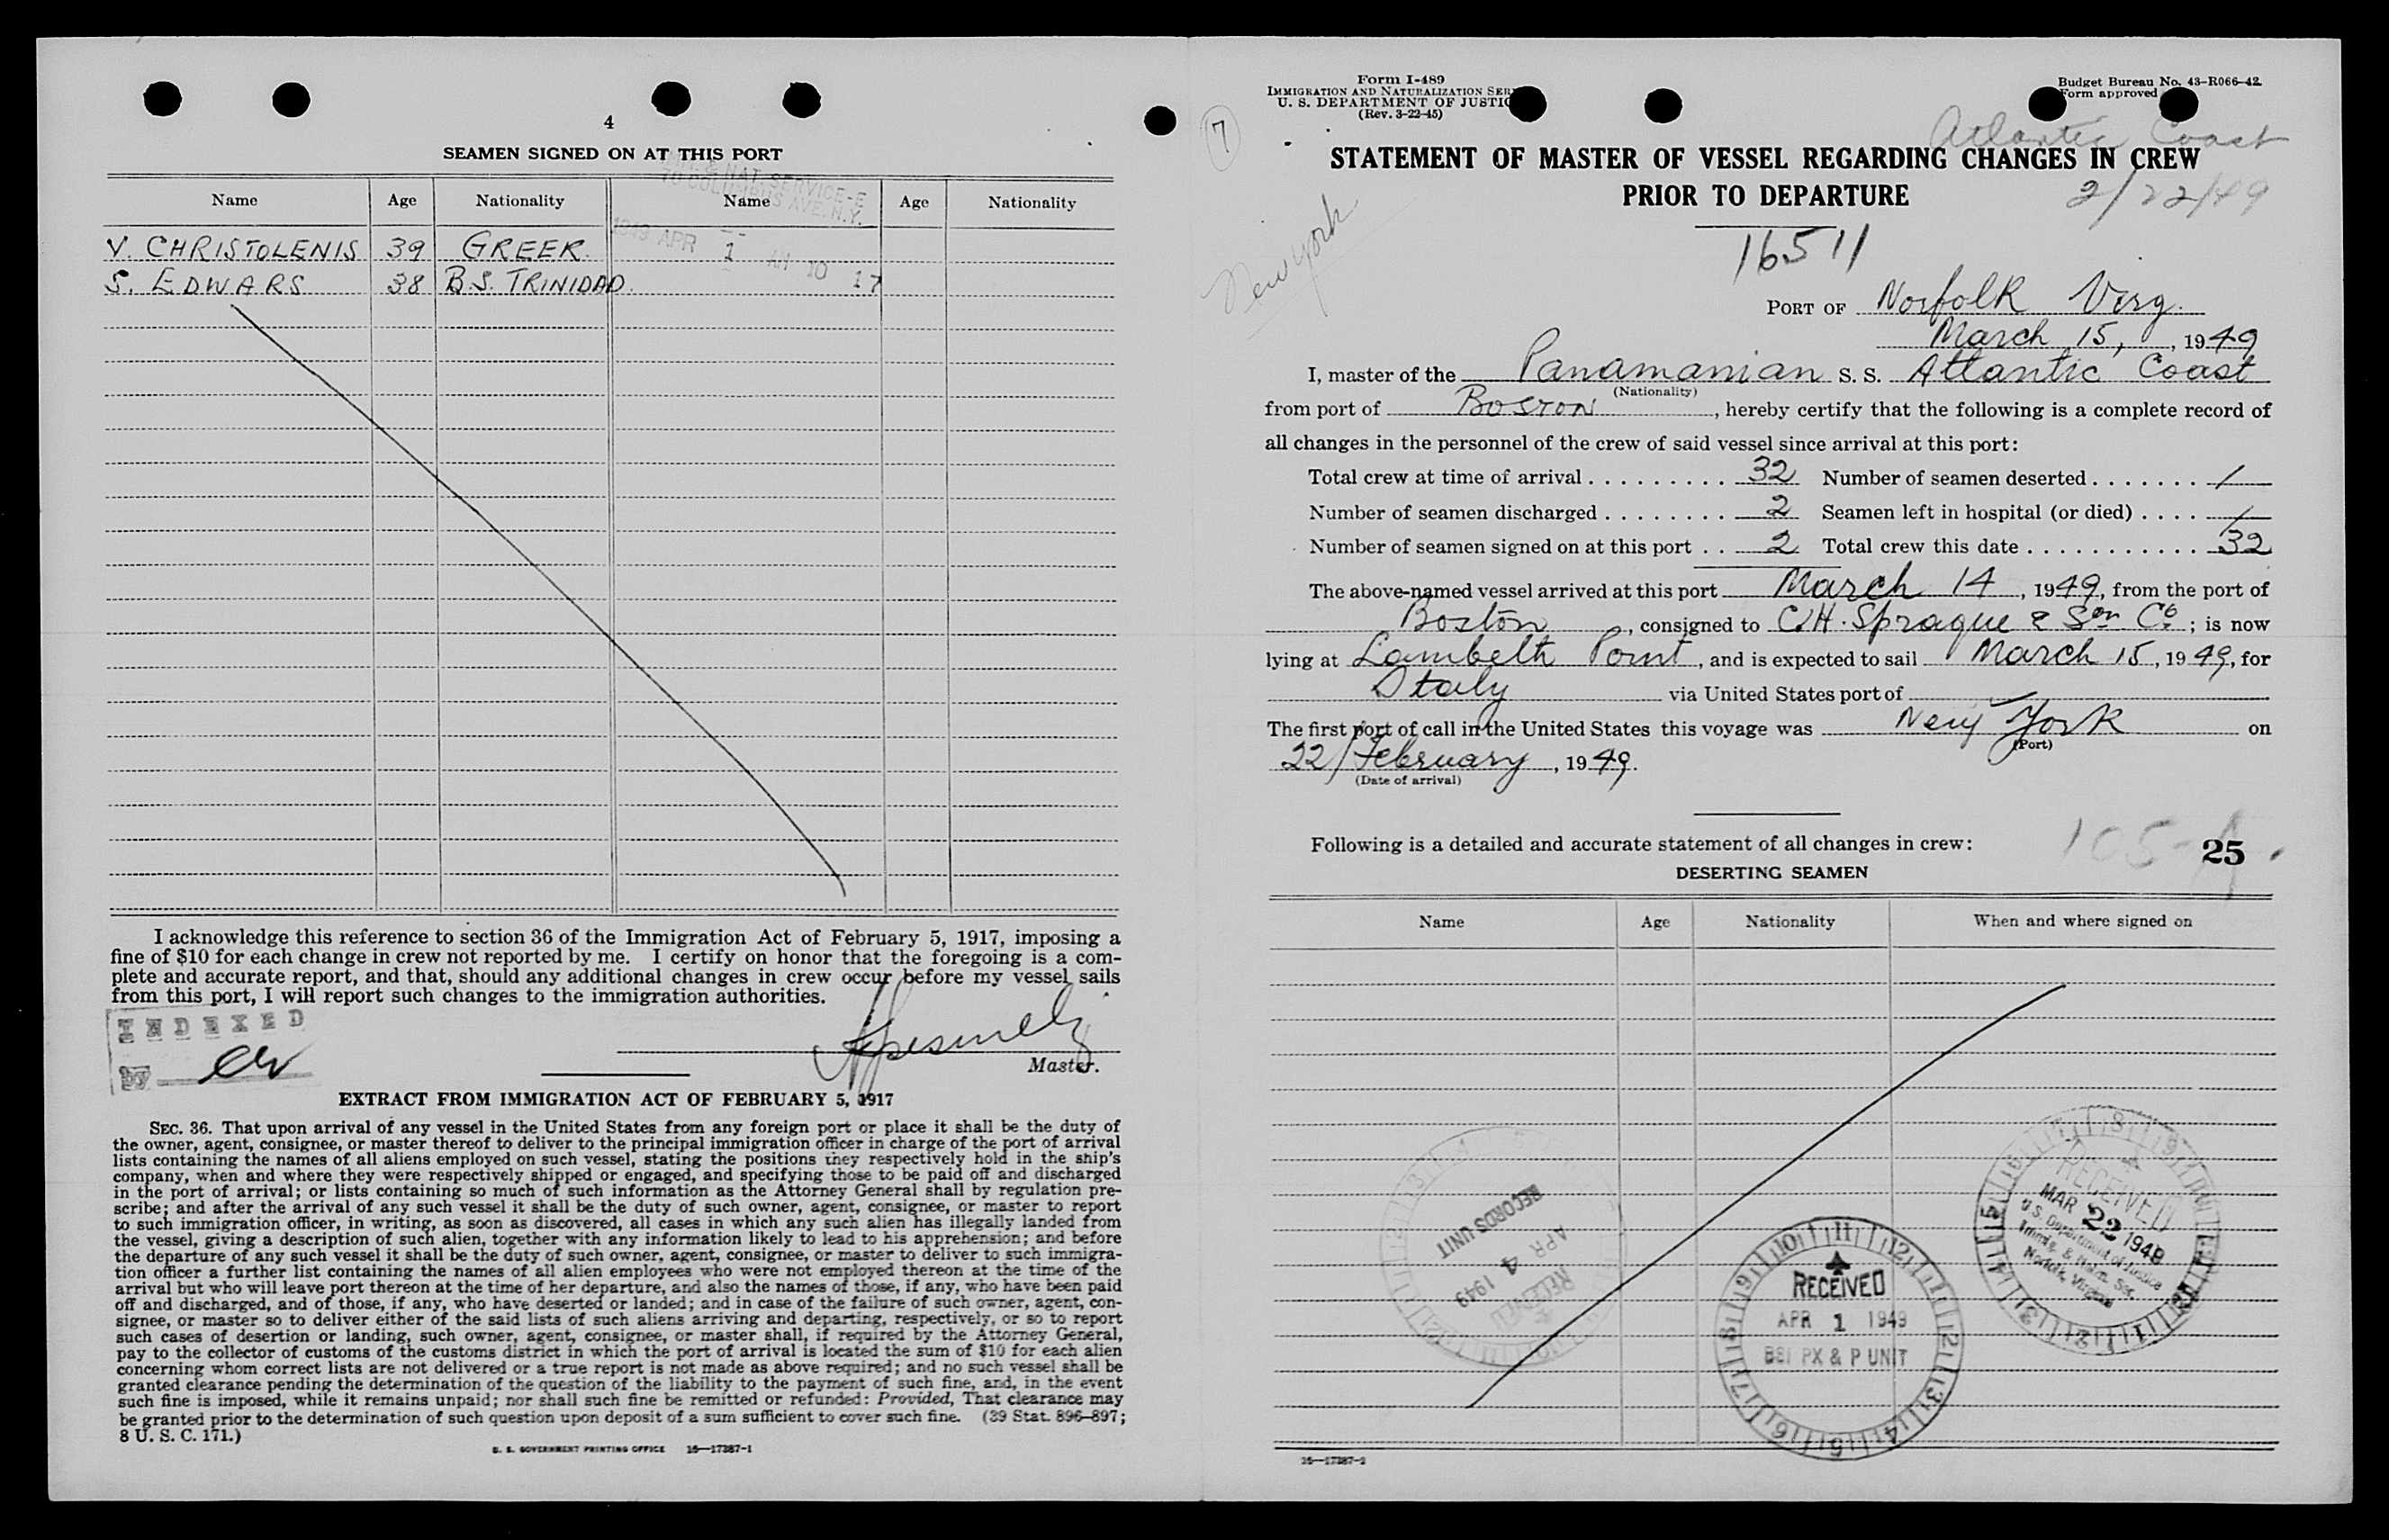 4
SEAMEN SIGNED ON AT THIS PORT
& NAT. SERVICE-E
70 COLUMBUS AVE. N.Y.
1949 APR 1 AM 10 17
Name Age Nationality Name Age Nationality
V. CHRISTOLENIS 39 GREEK.
S. EDWARS 38 B.S. TRINIDAD.
I acknowledge this reference to section 36 of the Immigration Act of February 5, 1917, imposing a
fine of $10 for each change in crew not reported by me. I certify on honor that the foregoing is a com-
plete and accurate report, and that, should any additional changes in crew occur before my vessel sails
from this port, I will report such changes to the immigration authorities.
INDEXED
by
Master.
EXTRACT FROM IMMIGRATION ACT OF FEBRUARY 5, 1917
SEC. 36. That upon arrival of any vessel in the United States from any foreign port or place it shall be the duty of
the owner, agent, consignee, or master thereof to deliver to the principal immigration officer in charge of the port of arrival
lists containing the names of all aliens employed on such vessel, stating the positions they respectively hold in the ship's
company, when and where they were respectively shipped or engaged, and specifying those to be paid off and discharged
in the port of arrival; or lists containing so much of such information as the Attorney General shall by regulation pre-
scribe; and after the arrival of any such vessel it shall be the duty of such owner, agent, consignee, or master to report
to such immigration officer, in writing, as soon as discovered, all cases in which any such alien has illegally landed from
the vessel, giving a description of such alien, together with any information likely to lead to his apprehension; and before
the departure of any such vessel it shall be the duty of such owner, agent, consignee, or master to deliver to such immigra-
tion officer a further list containing the names of all alien employees who were not employed thereon at the time of the
arrival but who will leave port thereon at the time of her departure, and also the names of those, if any, who have been paid
off and discharged, and of those, if any, who have deserted or landed; and in case of the failure of such owner, agent, con-
signee, or master so to deliver either of the said lists of such aliens arriving and departing, respectively, or so to report
such cases of desertion or landing, such owner, agent, consignee, or master shall, if required by the Attorney General,
pay to the collector of customs of the customs district in which the port of arrival is located the sum of $10 for each alien
concerning whom correct lists are not delivered or a true report is not made as above required; and no such vessel shall be
granted clearance pending the determination of the question of the liability to the payment of such fine, and, in the event
such fine is imposed, while it remains unpaid; nor shall such fine be remitted or refunded: Provided, That clearance may
be granted prior to the determination of such question upon deposit of a sum sufficient to cover such fine. (39 Stat. 896-897;
8 U. S. C. 171.)
U. S. GOVERNMENT PRINTING OFFICE 16—17387-1
7
Form I-489
IMMIGRATION AND NATURALIZATION SER
U. S. DEPARTMENT OF JUSTIC
(Rev. 3-22-45)
Budget Bureau No. 43-R066-42.
Form approved
Atlantic Coast
STATEMENT OF MASTER OF VESSEL REGARDING CHANGES IN CREW
PRIOR TO DEPARTURE
2/22/49
New York
16511
PORT OF Norfolk Virg.
March 15, , 1949
I, master of the Panamanian S. S. Atlantic Coast
(Nationality)
from port of Boston , hereby certify that the following is a complete record of
all changes in the personnel of the crew of said vessel since arrival at this port:
Total crew at time of arrival . . . . . . . . . 32 Number of seamen deserted . . . . . . . /
Number of seamen discharged . . . . . . . . 2 Seamen left in hospital (or died) . . . . /
Number of seamen signed on at this port . . 2 Total crew this date . . . . . . . . . . . . 32
The above-named vessel arrived at this port March 14 , 1949, from the port of
Boston , consigned to C.H. Sprague & Son Co. ; is now
lying at Lambelth Point , and is expected to sail March 15 , 1949, for
Italy via United States port of
The first port of call in the United States this voyage was New York on
(Port)
22/February , 1949.
(Date of arrival)
Following is a detailed and accurate statement of all changes in crew:
105-A
25
DESERTING SEAMEN
Name Age Nationality When and where signed on
RECORDS UNIT
APR 4 1949
RECEIVED
RECEIVED
APR 1 1949
BSI PX & P UNIT
RECEIVED
MAR 22 1949
U.S. Department of Justice
Immig. & Natzn. Ser.
Norfolk, Virginia
16—17387-1